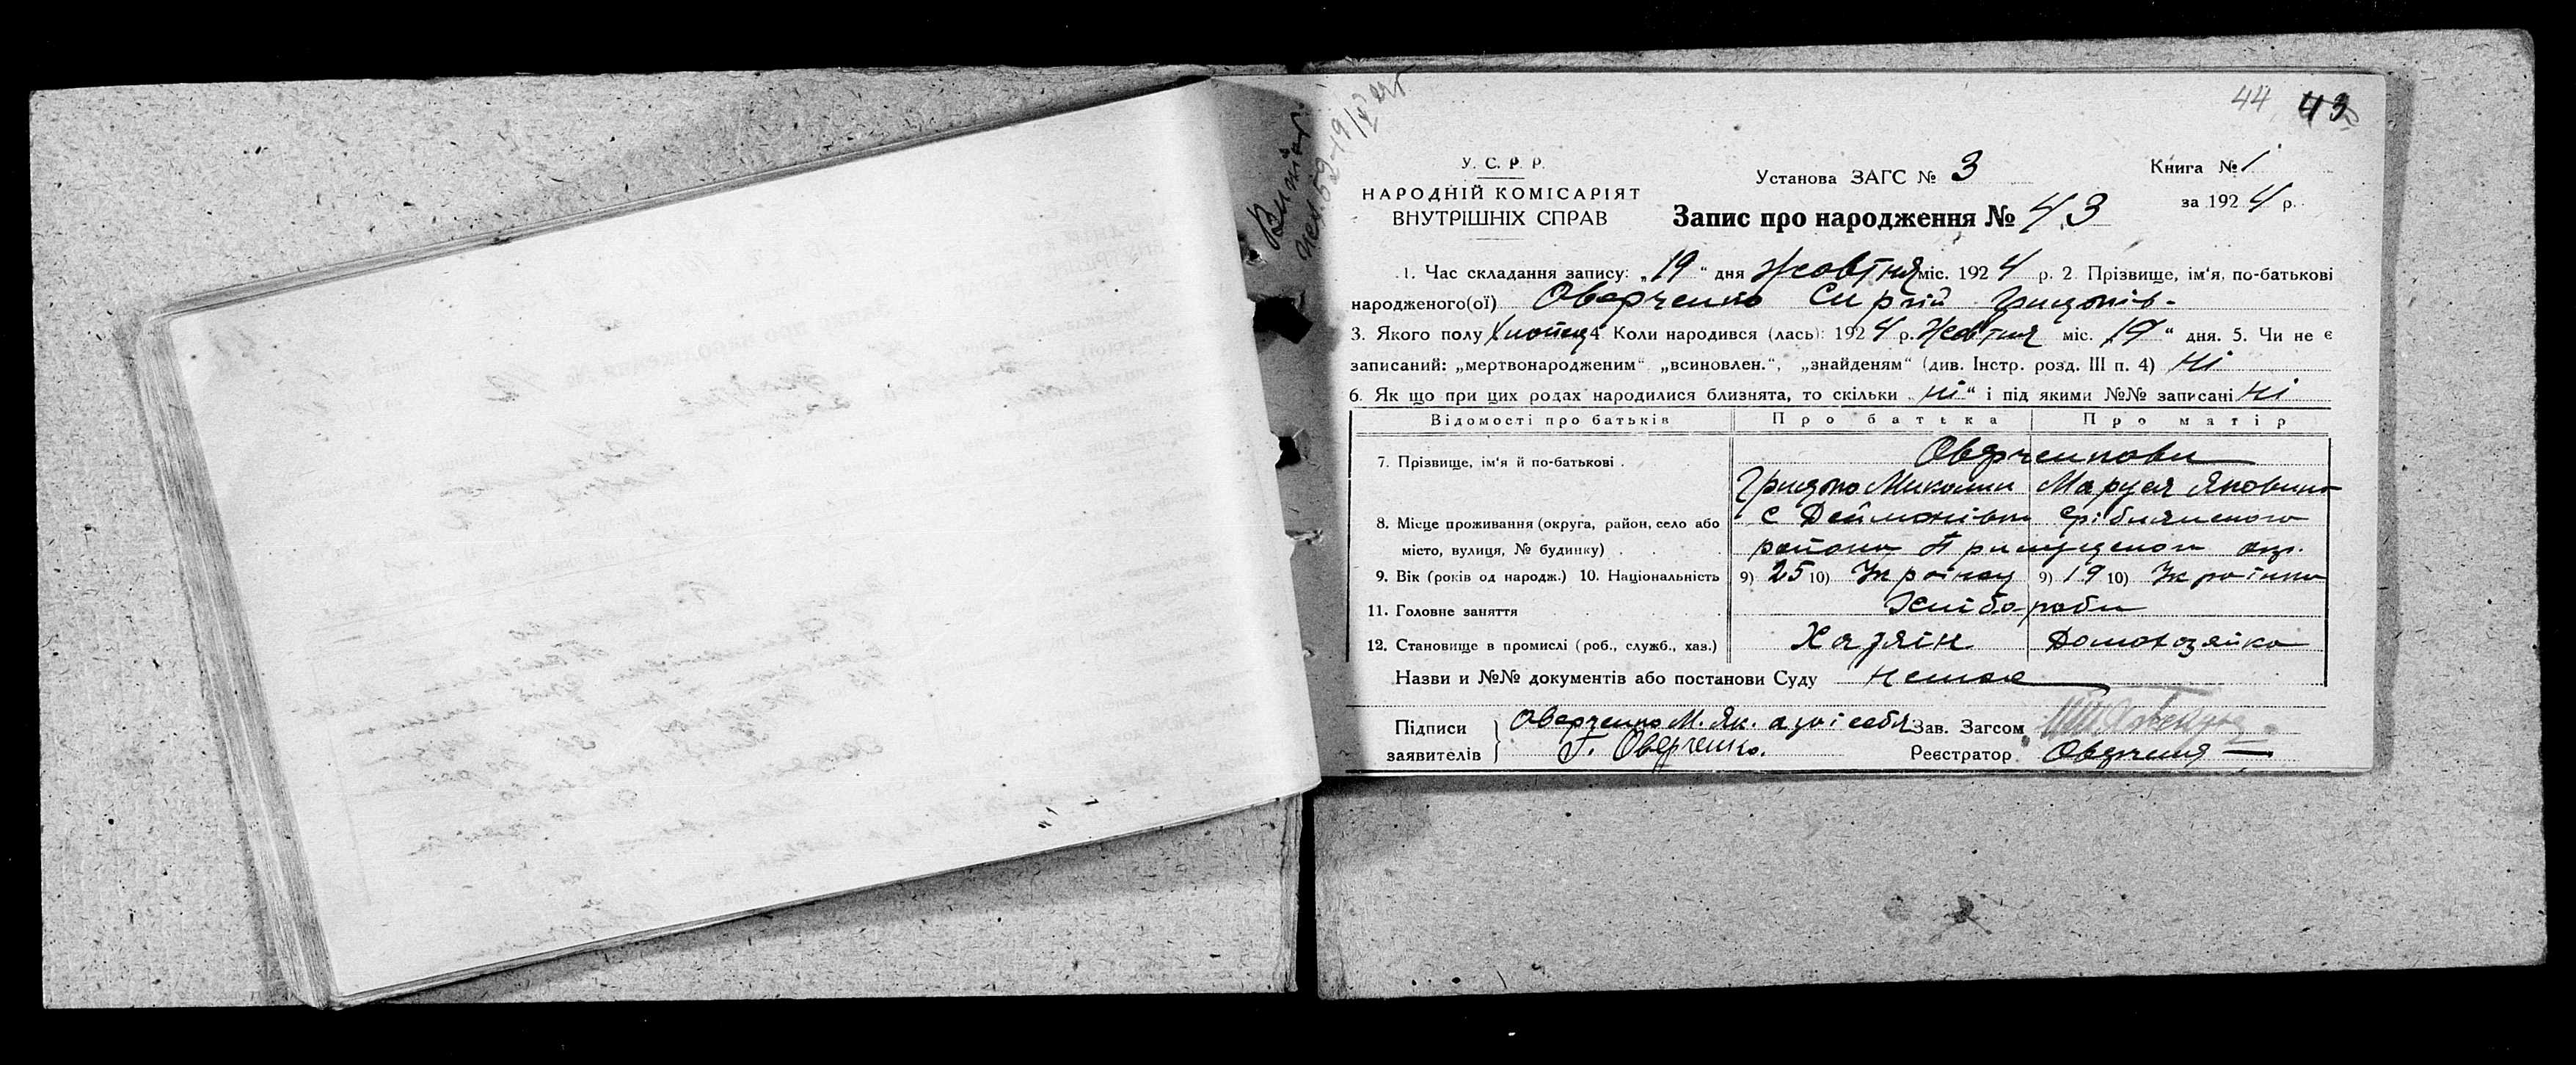 44 43
У. С. Р. Р.
НАРОДНІЙ КОМІСАРІЯТ
ВНУТРІШНІХ СПРАВ
Установа ЗАГС № 3
Книга № 1
за 1924 р.
Запис про народження № 43
1. Час складання запису: „19“ дня Жовтня міс. 1924 р. 2. Прізвище, ім'я, по-батькові
народженого(ої) Оверченко Сиргій Грицьків-
3. Якого полу Хлопец 4 Коли народився (лась): 1924 р. Жовтня міс. „19“ дня. 5. Чи не є
записаний: „мертвонародженим“ „всиновлен.“, „знайденям“ (див. Інстр. розд. III п. 4) Ні
6. Як що при цих родах народилися близнята, то скільки „Ні“ і під якими №№ записані Ні
Відомості про батьків Про батька Про матір
7. Прізвище, ім'я й по-батькові . Оверченкови
Грицько Миколин Маруся Яковина
8. Місце проживання (округа, район, село або с Деймонівка Срібнянского
місто, вулиця, № будинку) . . . района Прилуцькои окр.
9. Вік (років од народж.) 10. Національність 9) 25 10) Украінец 9) 19 10) Украінка
11. Головне заняття Хлібороби
12. Становище в промислі (роб., служб., хаз.) Хазяін Домохозяйка
Назви и №№ документів або постанови Суду Немае
Підписи заявителів } Оверченко М. Як. а за себя
Г. Оверченко.
Зав. Загсом
Реєстратор